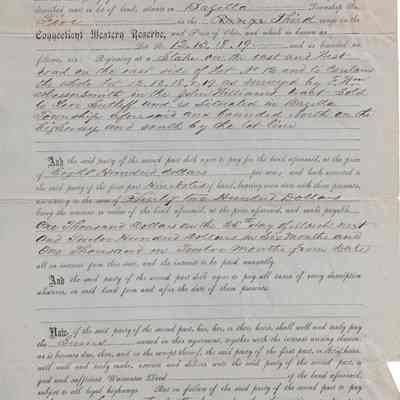 described tract or lot of land, situate in Bazetta Township No.
Five in the Range Third range in the
Connecticut Western Reserve, and State of Ohio, and which is known as
Lot No. and is bounded as
follows, viz: Beginning at a Stake on the East and West
road on the east side of Lot No. and to contain
the whole Lot as surveyed by
on the John Williams tract Sold
to and is situated in Bazetta
Township aforesaid and bounded North on the
highway and south by the lot line
And the said party of the second part doth agree to pay for the land aforesaid, at the price
of Eight Hundred dollars per acre; and hath executed to
the said party of the first part bond, bearing even date with these presents,
amounting to the sum of Hundred Dollars
being the interest in value of the land aforesaid, at the price aforesaid, and made payable
One Thousand Dollars on the day of March next
and Twelve Hundred dollars in Six Months and
One Thousand in Twelve Months from date
all on interest from this date, and the interest to be paid annually.
And the said party of the second part doth agree to pay all taxes of every description
whatever on said land from and after the date of these presents.
Now, if the said party of the second part, his, her, or their heirs, shall well and truly pay
the named in this agreement, together with the interest arising thereon,
as it becomes due, then, and in the receipt thereof, the said party of the first part, or his heirs,
will well and truly make, execute and deliver unto the said party of the second part, a
good and sufficient Warrantee Deed of the land aforesaid,
subject to all legal highways. But on failure of the said party of the second part to pay